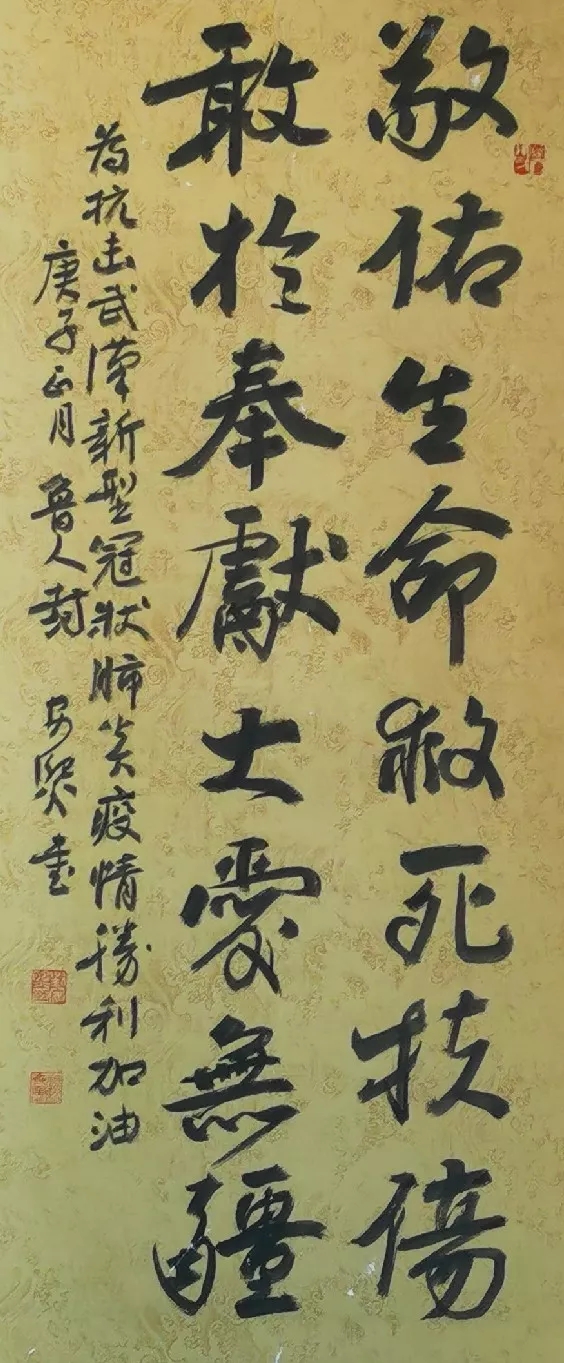 敬佑生命救死扶傷
敢於奉獻大愛無疆
为抗击武漢新型冠狀肺炎疫情勝利加油
庚子正月 魯人封 安 書